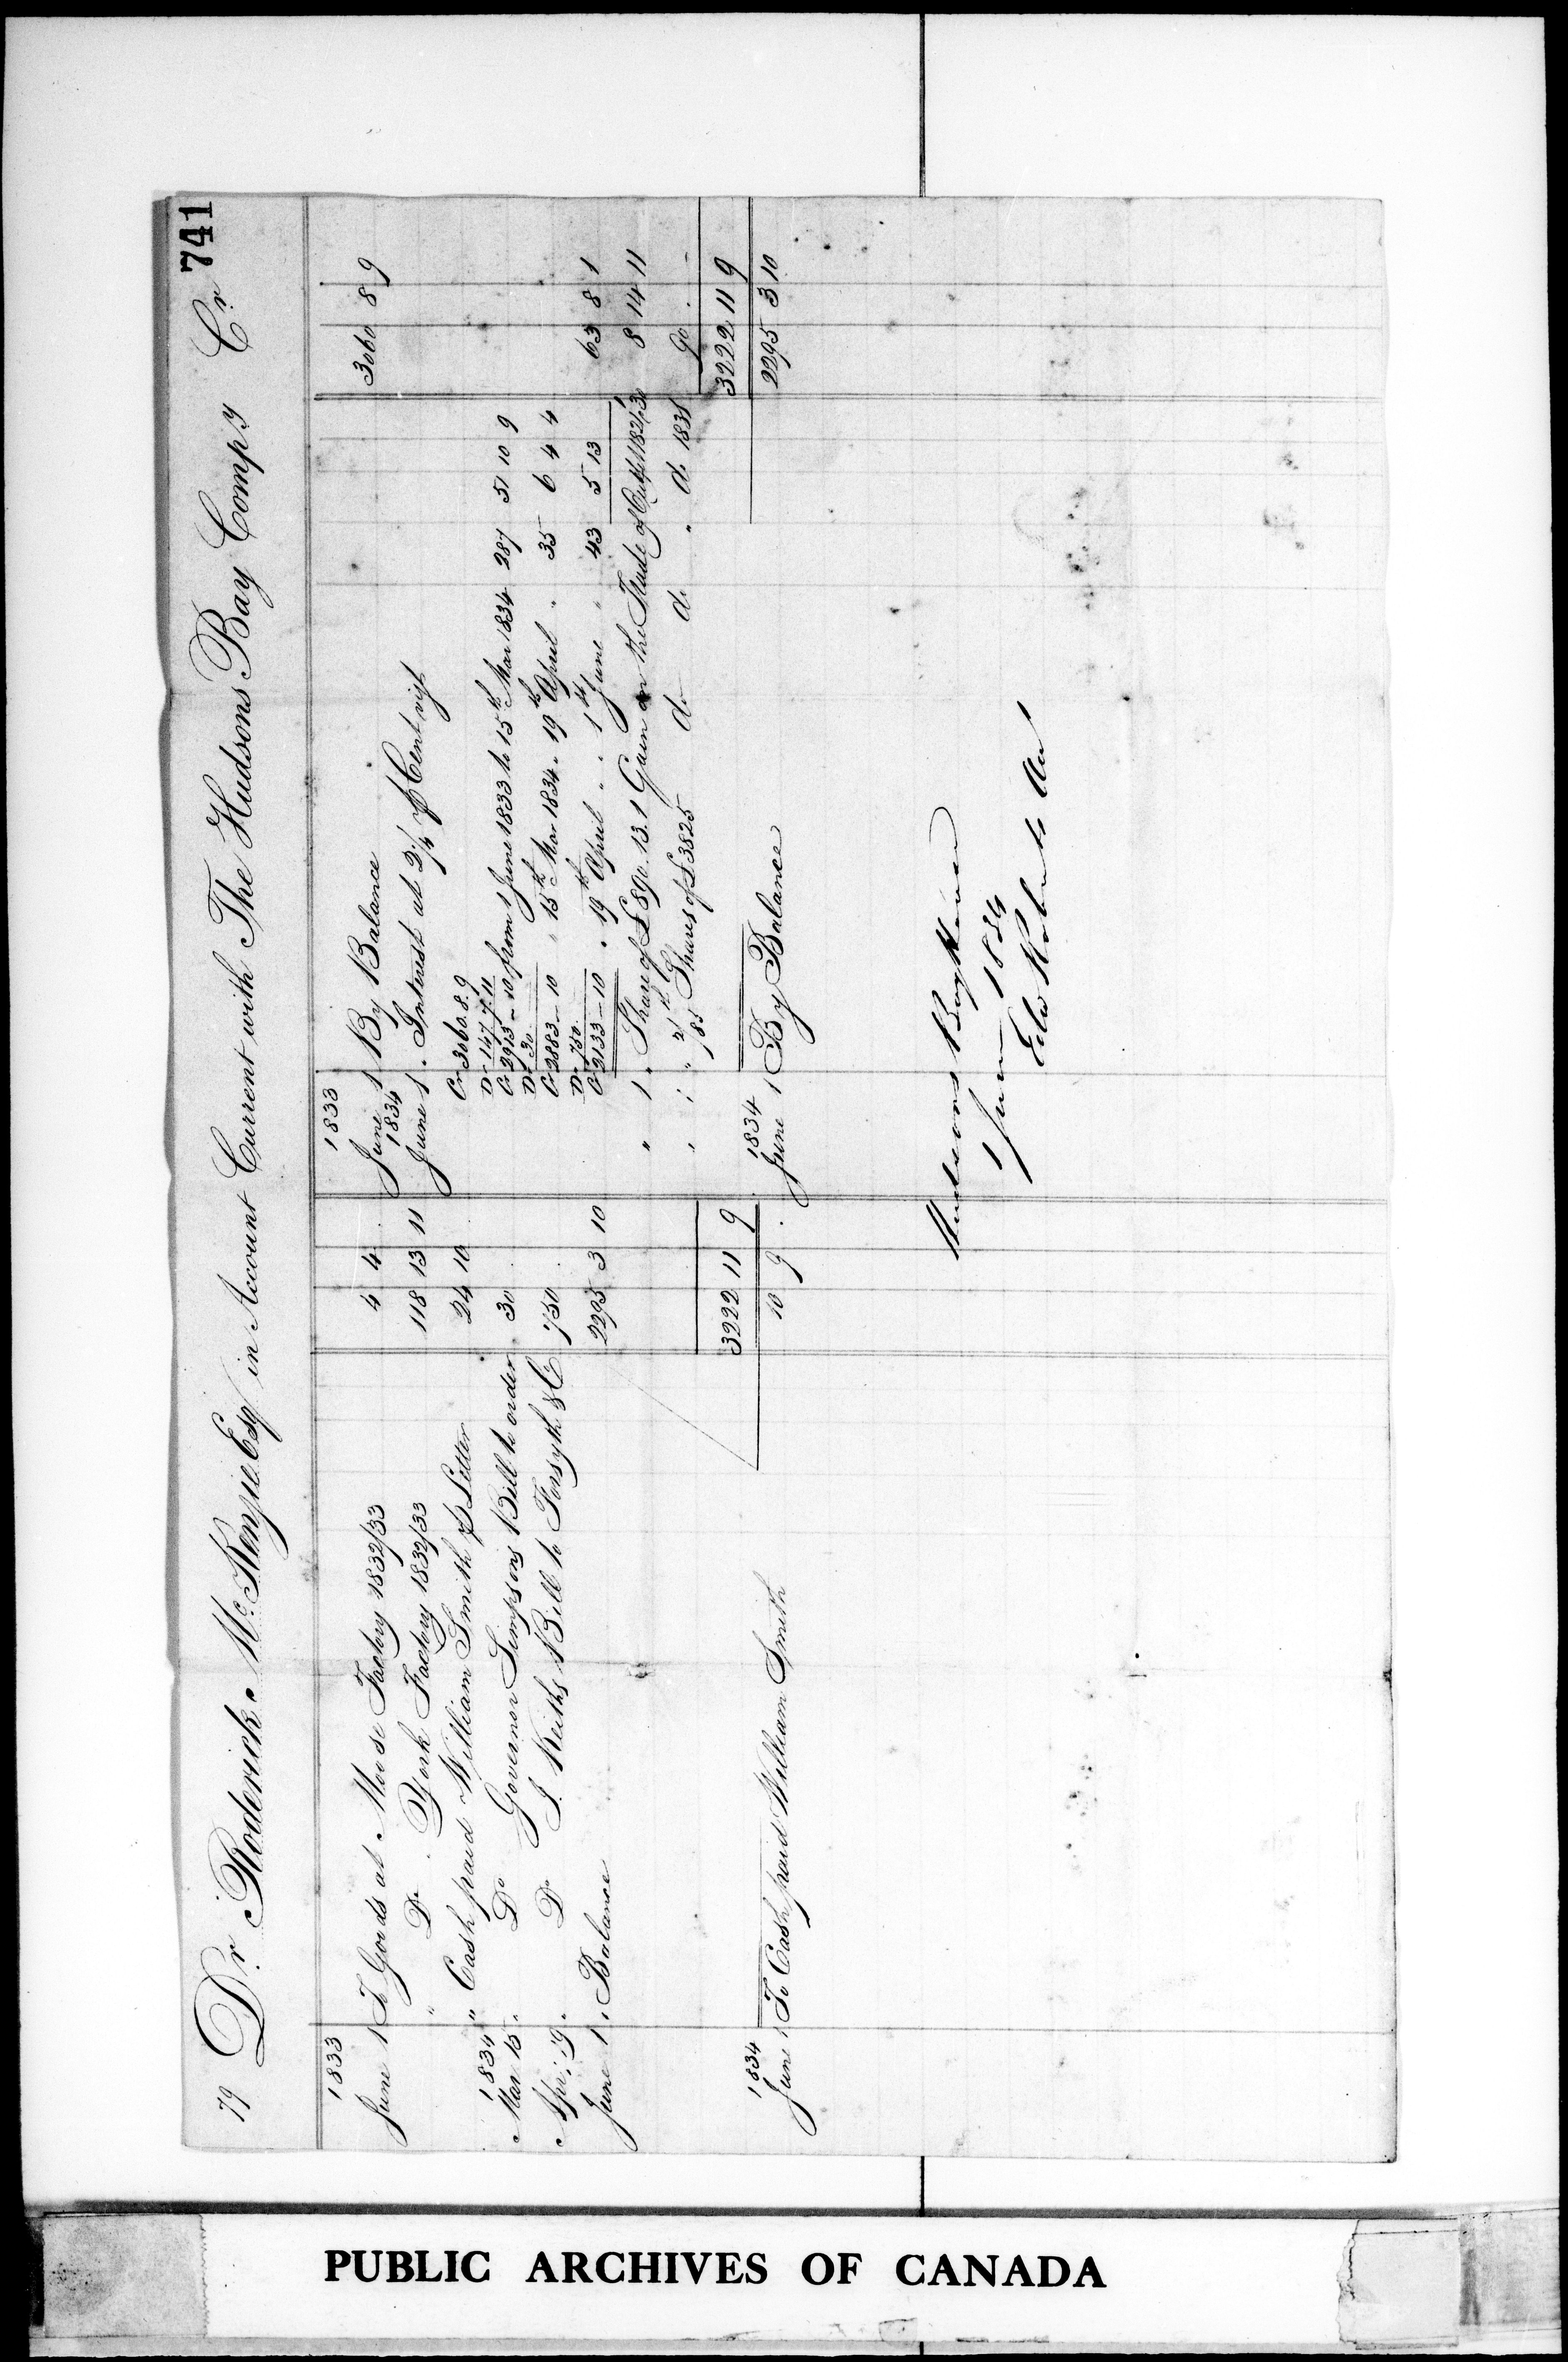 741
79 Dr. Roderick McKenzie Esq in Account Current with The Hudsons Bay Compy Cr.
1833
June 1 To Goods at Moose Factory 1832/33 4 4 .
" Do . York Factory 1832/33 118 13 11
" Cash paid William Smith p Letter 24 10 .
1834
Mar. 15 " Do Governor Simpsons Bill to order 30 . .
Apr. 19 " Do J. Keiths Bill to Forsyth & Co 750 . .
June 1 " Balance 2295 3 10
3222 11 9
1834
June 1 To Cash paid William Smith 10 9 .
1833
June 1 By Balance 3060 8 9
1834
June 1 . Interest at 2 1/4 p Cent vizt
Cr 3060.8.9
Dr 147.7.11
Cr 2913 _ 10 from 1 June 1833 to 15th Mar 1834 287 51 10 9
Dr 30.
Cr 2883 _ 10 " 15th Mar 1834 " 19th April " 35 6 4 4
Dr 750.
Cr 2133 _ 10 " 19th April " " 1st June " 43 5 13 63 8 1
" 1 " Share of £890.13.1 Gain on the Trade of Outfit 8 14 11
" 1 " 2/85th Shares of £3825 do do " do 1831 90 . -
3222 11 9
1834
June 1 By Balance 2295 3 10
Hudsons Bay House
1 June 1834